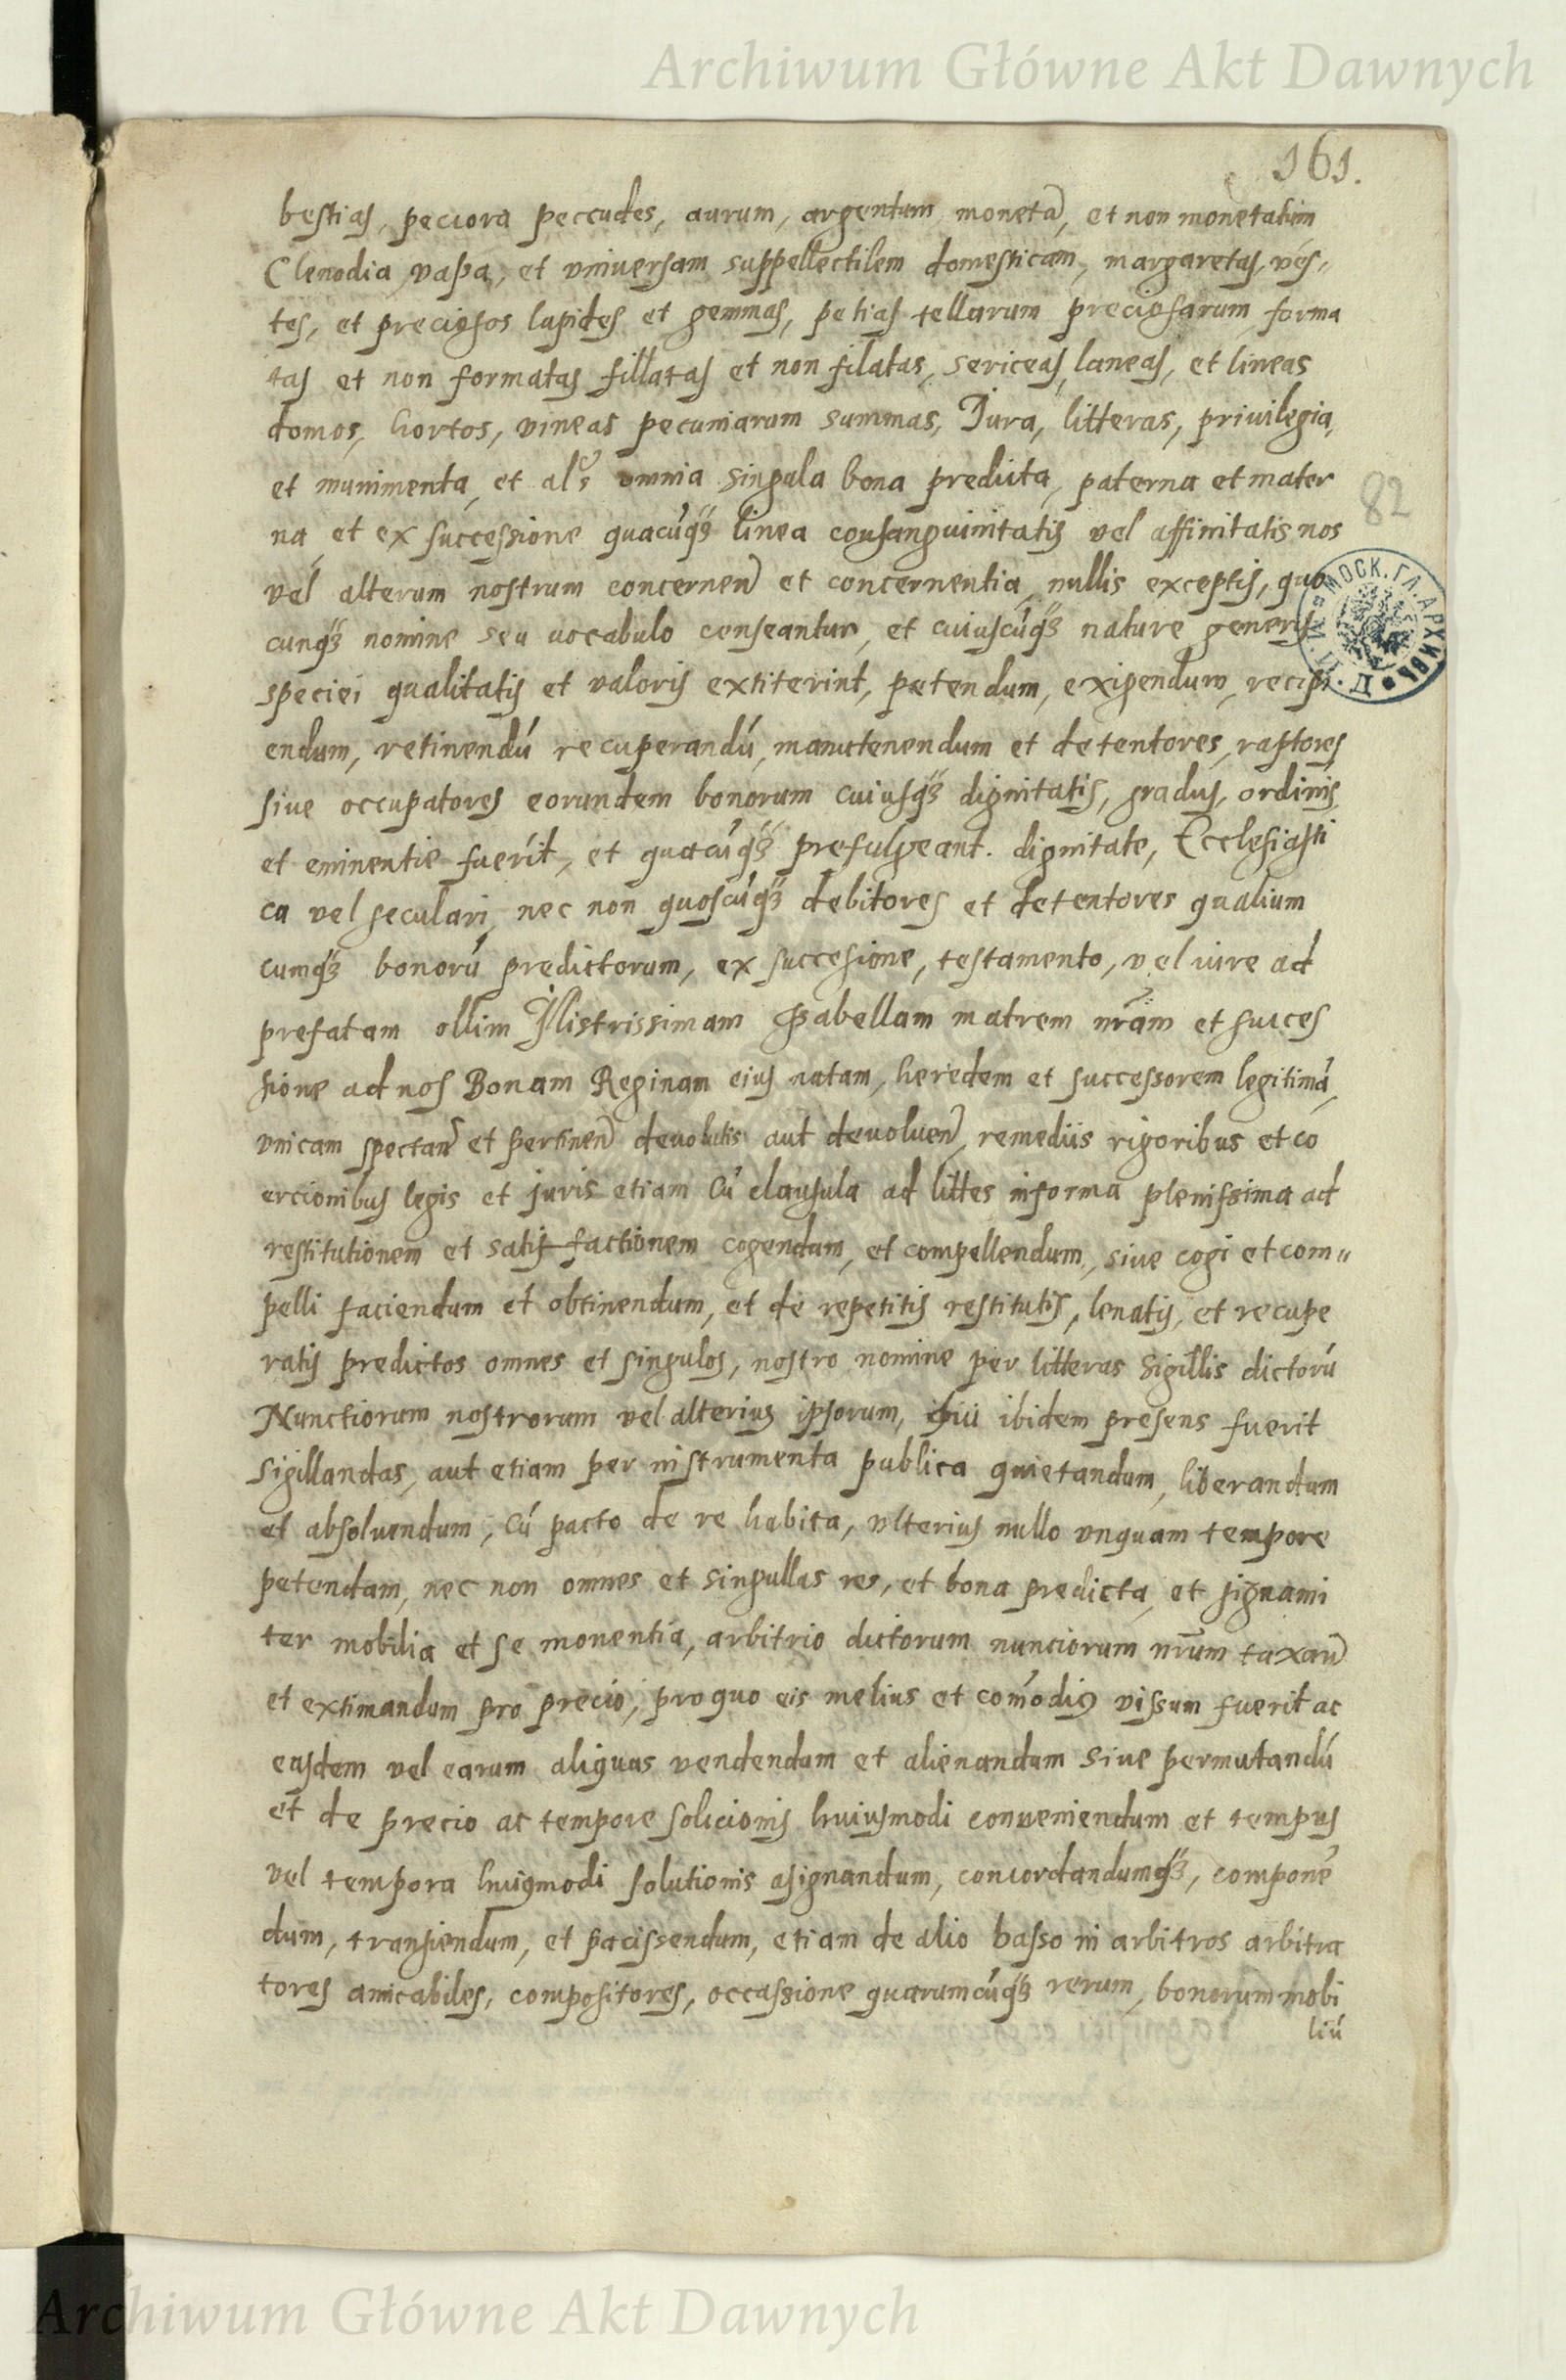 Archiwum Główne Akt Dawnych
161.
bestias, peciora peccudes, aurum, argentum monetã, et non monetatum
Clenodia vassa, et vniuersam suppellectilem domesticam, margaretas, ves,,
tes, et preciosos lapides et gemmas, petias tellarum preciosarum forma
tas et non formatas fillatas et non filatas, sericeas, laneas, et lineas
domos, hortos, vineas pecuniarum summas, Iura, litteras, priuilegia,
et munimenta, et als omnia singula bona predicta, paterna et mater
na, et ex successione quacũqʒ linea consanguinitatis vel affinitatis nos
vel alterum nostrum concernen̄ et concernentia, nullis exceptis, quo
cunqʒ nomine seu vocabulo censeantur, et cuiuscũqʒ nature generis
speciei qualitatis et valoris extiterint, petendum, exigendum, recipi
endum, retinendũ recuperandũ, manutenendum et detentores, raptores
siue occupatores eorundem bonorum cuiusqʒ dignitatis, gradus, ordinis
et eminentie fuerit, et quacũqʒ prefulgeant. dignitate, Ecclesiasti
ca vel seculari, nec non quoscũqʒ debitores et detentores qualium
cumqʒ bonorũ predictorum, ex succesione, testamento, vel iure ad
prefatam ollim Illistrissimam Isabellam matrem nr̃am et succes
sione ad nos Bonam Reginam eius natam, heredem et successorem legitimã,
vnicam spectan̄ et pertinen̄ deuolutis aut deuoluen̄, remediis rigoribus et co
ercionibus legis et juris etiam cũ clausula ad littes in forma plenissima ad
restitutionem et satisfactionem cogendam, et compellendum, siue cogi et com,,
pelli faciendum et obtinendum, et de repetitis restitutis, leuatis, et recupe
ratis predictos omnes et singulos, nostro nomine per litteras Sigillis dictorũ
Nunctiorum nostrorum vel alterius ipsorum, ibidem presens fuerit
Sigillandas, aut etiam per instrumenta publica quietandum, liberandum
et absoluendum, cũ pacto de re habita, vlterius nullo vnquam tempore
petendam, nec non omnes et singullas res, et bona predicta, et signami
ter mobilia et se monentia, arbitrio dictorum nunciorum nr̃um taxan̄
et extimandum pro precio, pro quo eis melius et com̃odiꝰ vissum fuerit ac
easdem vel earum aliquas vendendum et alienandum siue permutandũ
et de precio ac tempore solicionis huiusmodi conueniendum et tempus
vel tempora huiꝰmodi solutionis asignandum, concordandumqʒ, componẽ
dum, transiendum, et pacissendum, etiam de alio basso in arbitros arbitra
tores amicabiles, compositores, occassione quarumcũqʒ rerum, bonorum mobi
liũ
82
Archiwum Główne Akt Dawnych